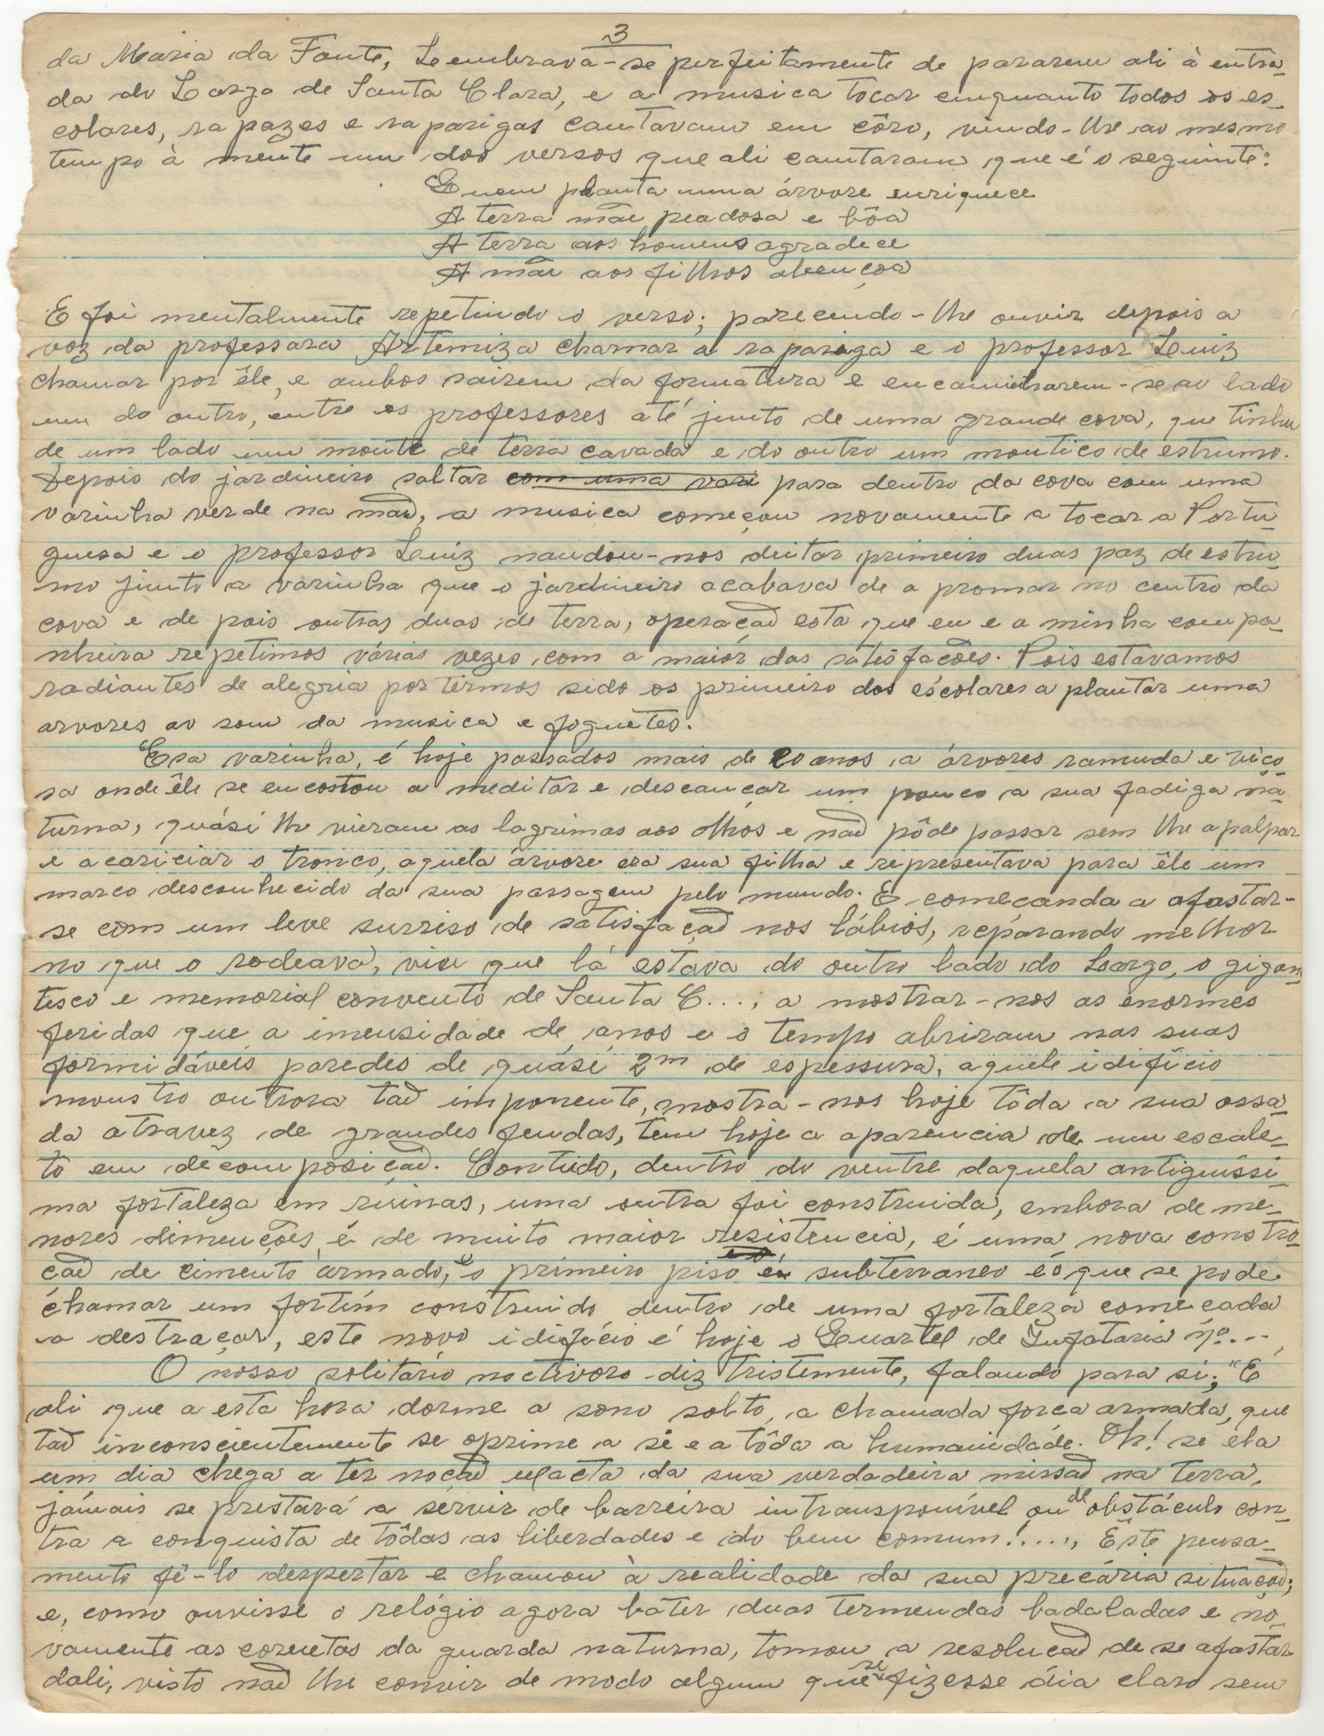 3
da Maria da Fonte, Lembrava-se perfeitamente de pararem ali à entra-
da do Largo de Santa Clara, e a musica tocar emquanto todos os es-
colares, rapazes e raparigas cantavam em côro, vindo-lhe ao mesmo
tempo à mente um dos versos que ali cantaram que é o seguinte:
Quem planta uma árvore enriquece
A terra mãe piadosa e bôa
A terra aos homens agradece
A mãe aos filhos abençoa
E foi mentalmente repetindo o verso; parecendo-lhe ouvir depois a
voz da professara Artemiza chamar a rapariga e o professor Luiz
chamar por êle, e ambos sairem da formatura e encaminharem-se ao lado
um do outro, entre os professores até junto de uma grande cova, que tinha
de um lado um monte de terra cavada e do outro um montico de estrumo.
Depois do jardineiro saltar com uma vari para dentro da cova com uma
varinha verde na mão, a musica começou novamente a tocar a Portu-
guesa e o professor Luiz mandou-nos deitar primeiro duas paz de estru-
mo junto a varinha que o jardineiro acabava de a promar no centro da
cova e de pois outras duas de terra, operação esta que eu e a minha compa-
nheira repetimos várias vezes com a maior das satisfações. Pois estavamos
radiantes de alegria por termos sido os primeiro dos escolares a plantar uma
arvores ao som da musica e foguetes.
Esa varinha, é hoje passados mais de 20 anos a árvores ramuda e viço-
sa onde êle se encostou a meditar e descançar um pouco a sua fadiga na-
turna, quási lhe vieram as lagrimas aos olhos e não pôde passar sem lhe apalpar
e acariciar o tronco, aquela árvore era sua filha e representava para êle um
marco desconhecido da sua passagem pelo mundo. E começanda a afastar-
se com um leve surriso de satisfação nos lábios, reparando melhor
no que o rodeava, viu que lá estava do outro lado do Largo, o gigan-
tesco e memorial convento de Santa C..., a mostrar-nos as enormes
feridas que a imensidade de anos e o tempo abriram nas suas
formidáveis paredes de quási 2m de espessura, aquele idifício
monstro outrora tão imponente, mostra-nos hoje tôda a sua ossa-
da atravez de grandes fendas, tem hoje a aparencia de um escale-
to em decomposição. Contudo, dentro do ventre daquela antiguíssi-
ma fortaleza em ruinas, uma outra foi construida, embora de me-
nores dimenções é de muito maior resistencia, é uma nova constro-
ção de cimento armado, e o primeiro piso é subterraneo é o que se pode
chamar um fortim construido dentro de uma fortaleza começada
a destroçar, este novo idifício é hoje o Quartel de Infataria nº...,
O nosso solitário noctivoro diz tristemente, falando para si; "E
ali que a esta hora dorme a sono solto, a chamada força armada, que
tão inconscientemente se oprime a si e a tôda a humanidade. Oh! se ela
um dia chega a ter noção exacta da sua verdadeira missão na terra,
jámais se prestará a servir de barreira intransponível ou de obstáculo con-
tra a conquista de tôdas as liberdades e do bem comum!...., Êste pensa-
mento fê-lo despertar e chamou à realidade da sua precária situação;
e, como ouvisse o relógio agora bater duas termendas badaladas e no-
vamente as cornetas da guarda naturna, tomou a resolução de se afastar
dali, visto não lhe convir de modo algum que se fizesse dia claro sem